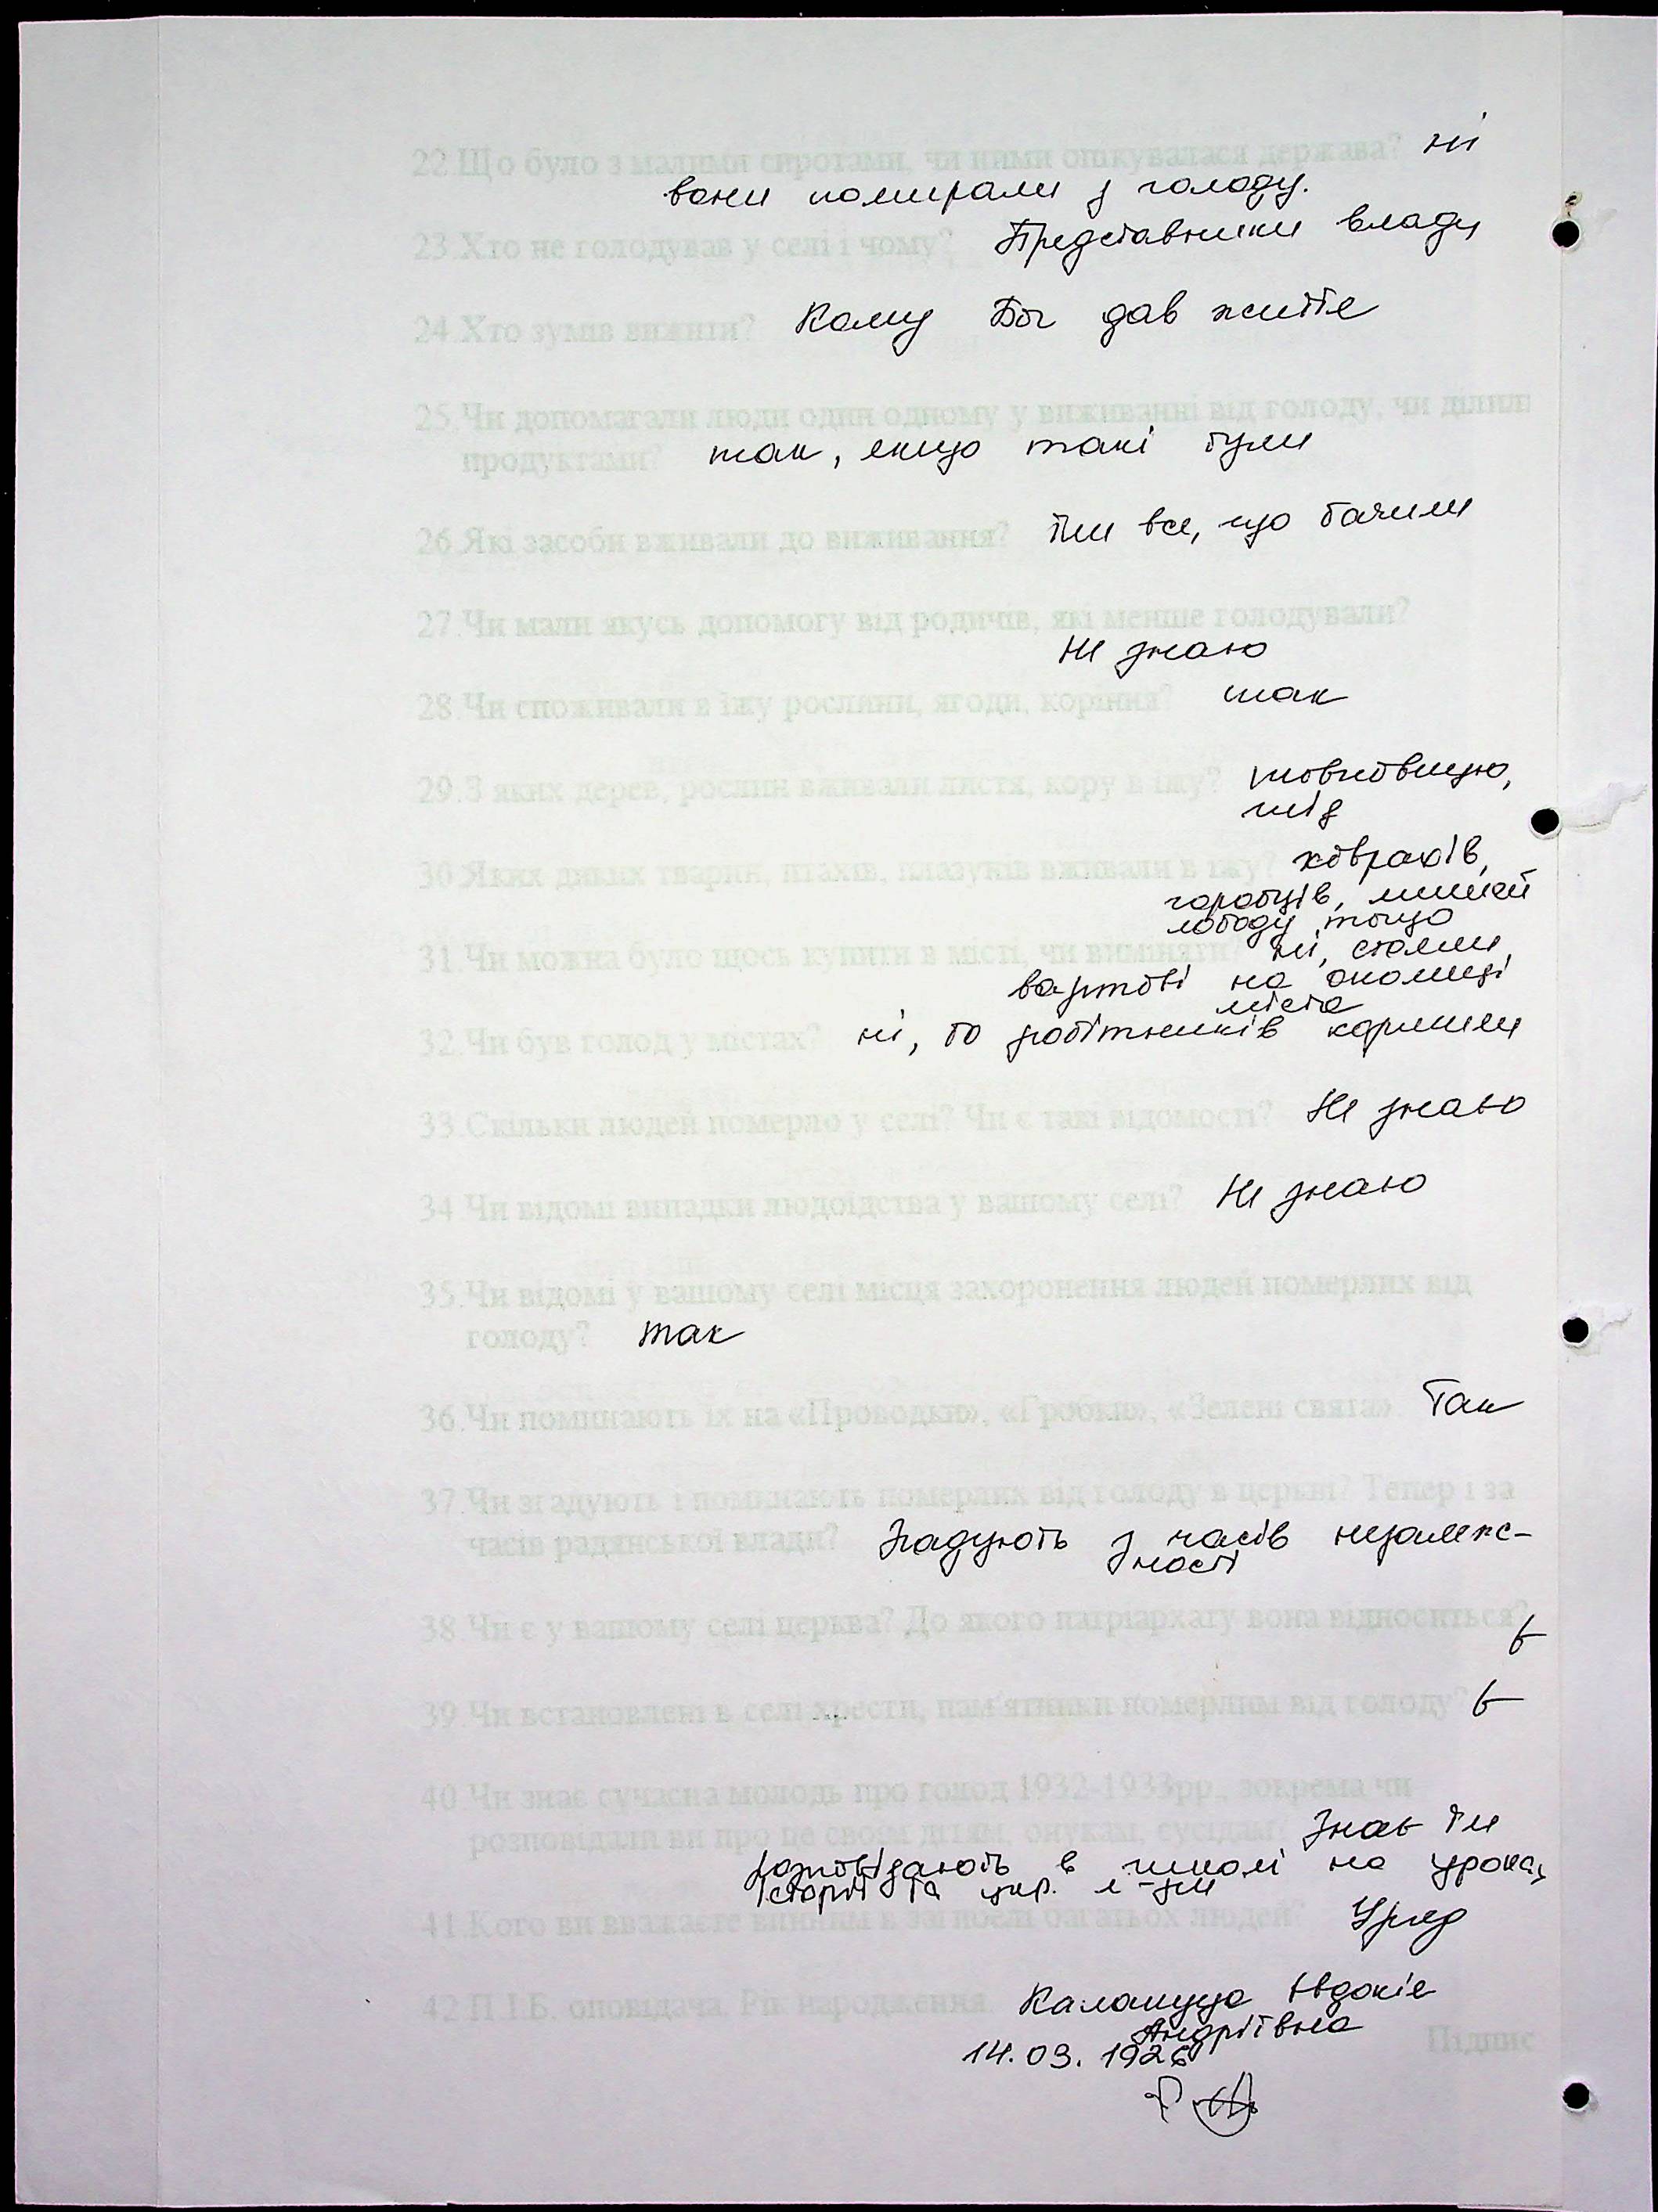 22.Що було з малими сиротами, чи ними опікувалася держава? ні
вони помирали з голоду.
23.Хто не голодував у селі і чому? Представники влади
24.Хто зумів вижити? Кому Бог дав життє
25.Чи допомагали люди один одному у виживанні від голоду, чи ділили
продуктами? так, якщо такі були
26.Які засоби вживали до виживання? їли все, що бачили
27.Чи мали якусь допомогу від родичів, які менше голодували?
Не знаю
28.Чи споживали в їжу рослини, ягоди, коріння? так
29.З яких дерев, рослин вживали листя, кору в їжу? шовковицю,
глід
30.Яких диких тварин, птахів, плазунів вживали в їжу? ховрахів,
горобців, мишей
лободу тощо
31.Чи можна було щось купити в місті, чи виміняти? ні, стояли
вартові на околиці
міста
32.Чи був голод у містах? ні, бо робітників кормили
33.Скільки людей померло у селі? Чи є такі відомості? Не знаю
34.Чи відомі випадки людоїдства у вашому селі? Не знаю
35.Чи відомі у вашому селі місця захоронення людей померлих від
голоду? так
36.Чи поминають їх на «Проводки», «Гробки», «Зелені свята» Так
37.Чи згадують і поминають померлих від голоду в церкві? Тепер і за
часів радянської влади? Згадують з часів незалеж-
ності
38.Чи є у вашому селі церква? До якого патріархату вона відноситься?
є
39.Чи встановлені в селі хрести, пам'ятники померлим від голоду? є
40.Чи знає сучасна молодь про голод 1932-1933рр., зокрема чи
розповідали ви про це своїм дітям, онукам, сусідам? Знає їм
розповідають в школі на уроках
історії та укр. л-ри
41.Кого ви вважаєте винним в загибелі багатьох людей? Уряд
42.П.І.Б. оповідача. Рік народження. Євдокіє
Андріївна
Підпис
14.09.1926